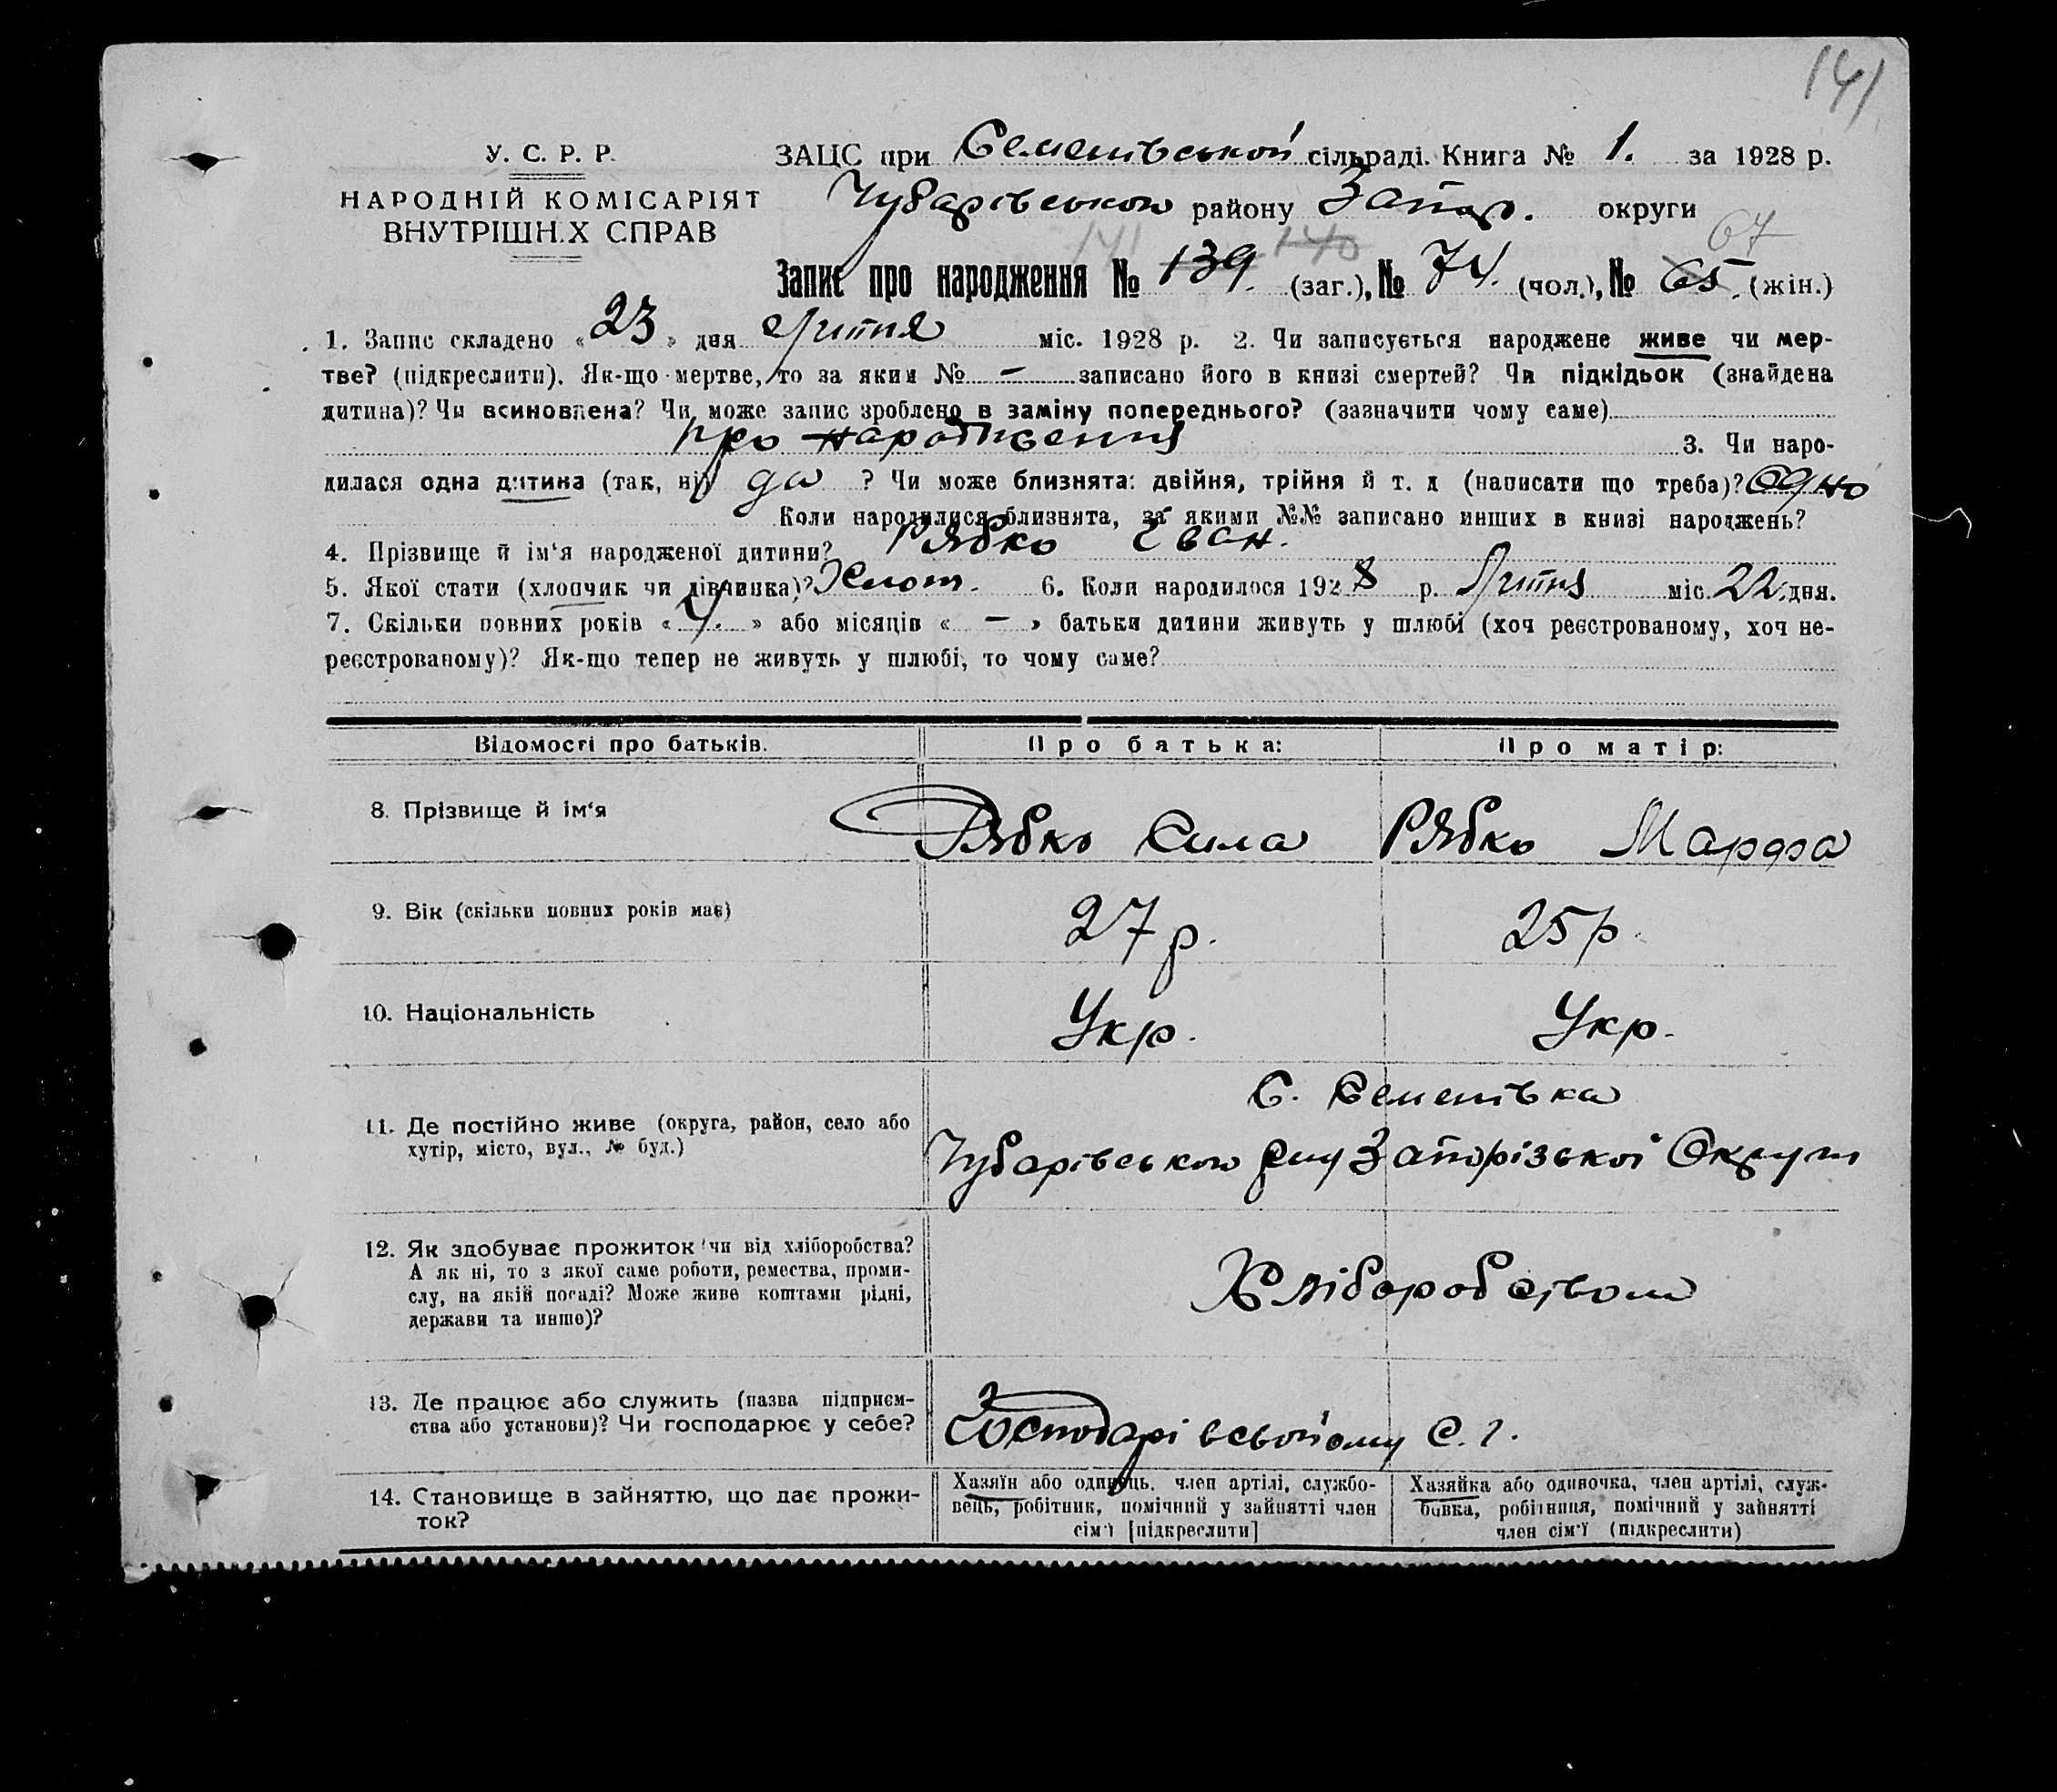 141
У. С. Р. Р.
НАРОДНІЙ КОМІСАРІЯТ
ВНУТРІШН.Х СПРАВ
ЗАЦС при Семенівській сільраді. Книга № 1. за 1928 р.
Чубарівського району Запор. округи
141 140 67
Запис про народження № 139. (заг.), № 74. (чол.), № 65. (жін.)
1. Запис складено « 23 » дня Липня міс. 1928 р. 2. Чи записується народжене живе чи мер-
тве? (підкреслити). Як-що мертве, то за яким № — записано його в книзі смертей? Чи підкідьок (знайдена
дитина)? Чи всиновлена? Чи може запис зроблено в заміну попереднього? (зазначити чому саме)
про народження 3. Чи наро-
дилася одна дитина (так, ні) да ? Чи може близнята: двійня, трійня й т. д (написати що треба)? Одно
Коли народилися близнята, за якими №№ записано инших в книзі народжень?
4. Прізвище й ім‘я народженої дитини? Рябко Іван.
5. Якої стати (хлопчик чи дівчинка)? Хлоп. 6. Коли народилося 1928 р. Липня міс. 22 дня.
7. Скільки повних років « 4. » або місяців « — » батьки дитини живуть у шлюбі (хоч реєстрованому, хоч не-
реєстрованому)? Як-що тепер не живуть у шлюбі, то чому саме?
Відомості про батьків. Про батька: Про матір:
8. Прізвище й ім‘я Рябко Сила Рябко Марфа
9. Вік (скільки повних років має) 27 р. 25 р.
10. Національність Укр. Укр.
С. Семенівка
11. Де постійно живе (округа, район, село або
хутір, місто, вул., № буд.) Чубарівського р-ну Запорізької Округи
12. Як здобуває прожиток чи від хліборобства?
А як ні, то з якої саме роботи, ремества, проми-
слу, на якій посаді? Може живе коштами рідні,
держави та инше)?
Хліборобством
13. Де працює або служить (назва підприєм-
ства або установи)? Чи господарює у себе?
Господарі всвойому С. Г.
14. Становище в зайняттю, що дає прожи-
ток?
Хазяїн або одинець, член артілі, службо-
вець, робітник, помічний у зайнятті член
сім‘ї [підкреслити]
Хазяйка або одиночка, член артілі, служ-
бовка, робітниця, помічний у зайнятті
член сім‘ї (підкреслити)